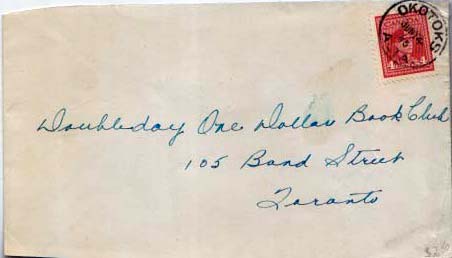 OKOTOKS
Doubleday One Dollar Book Club
105 Bond Street
Toronto